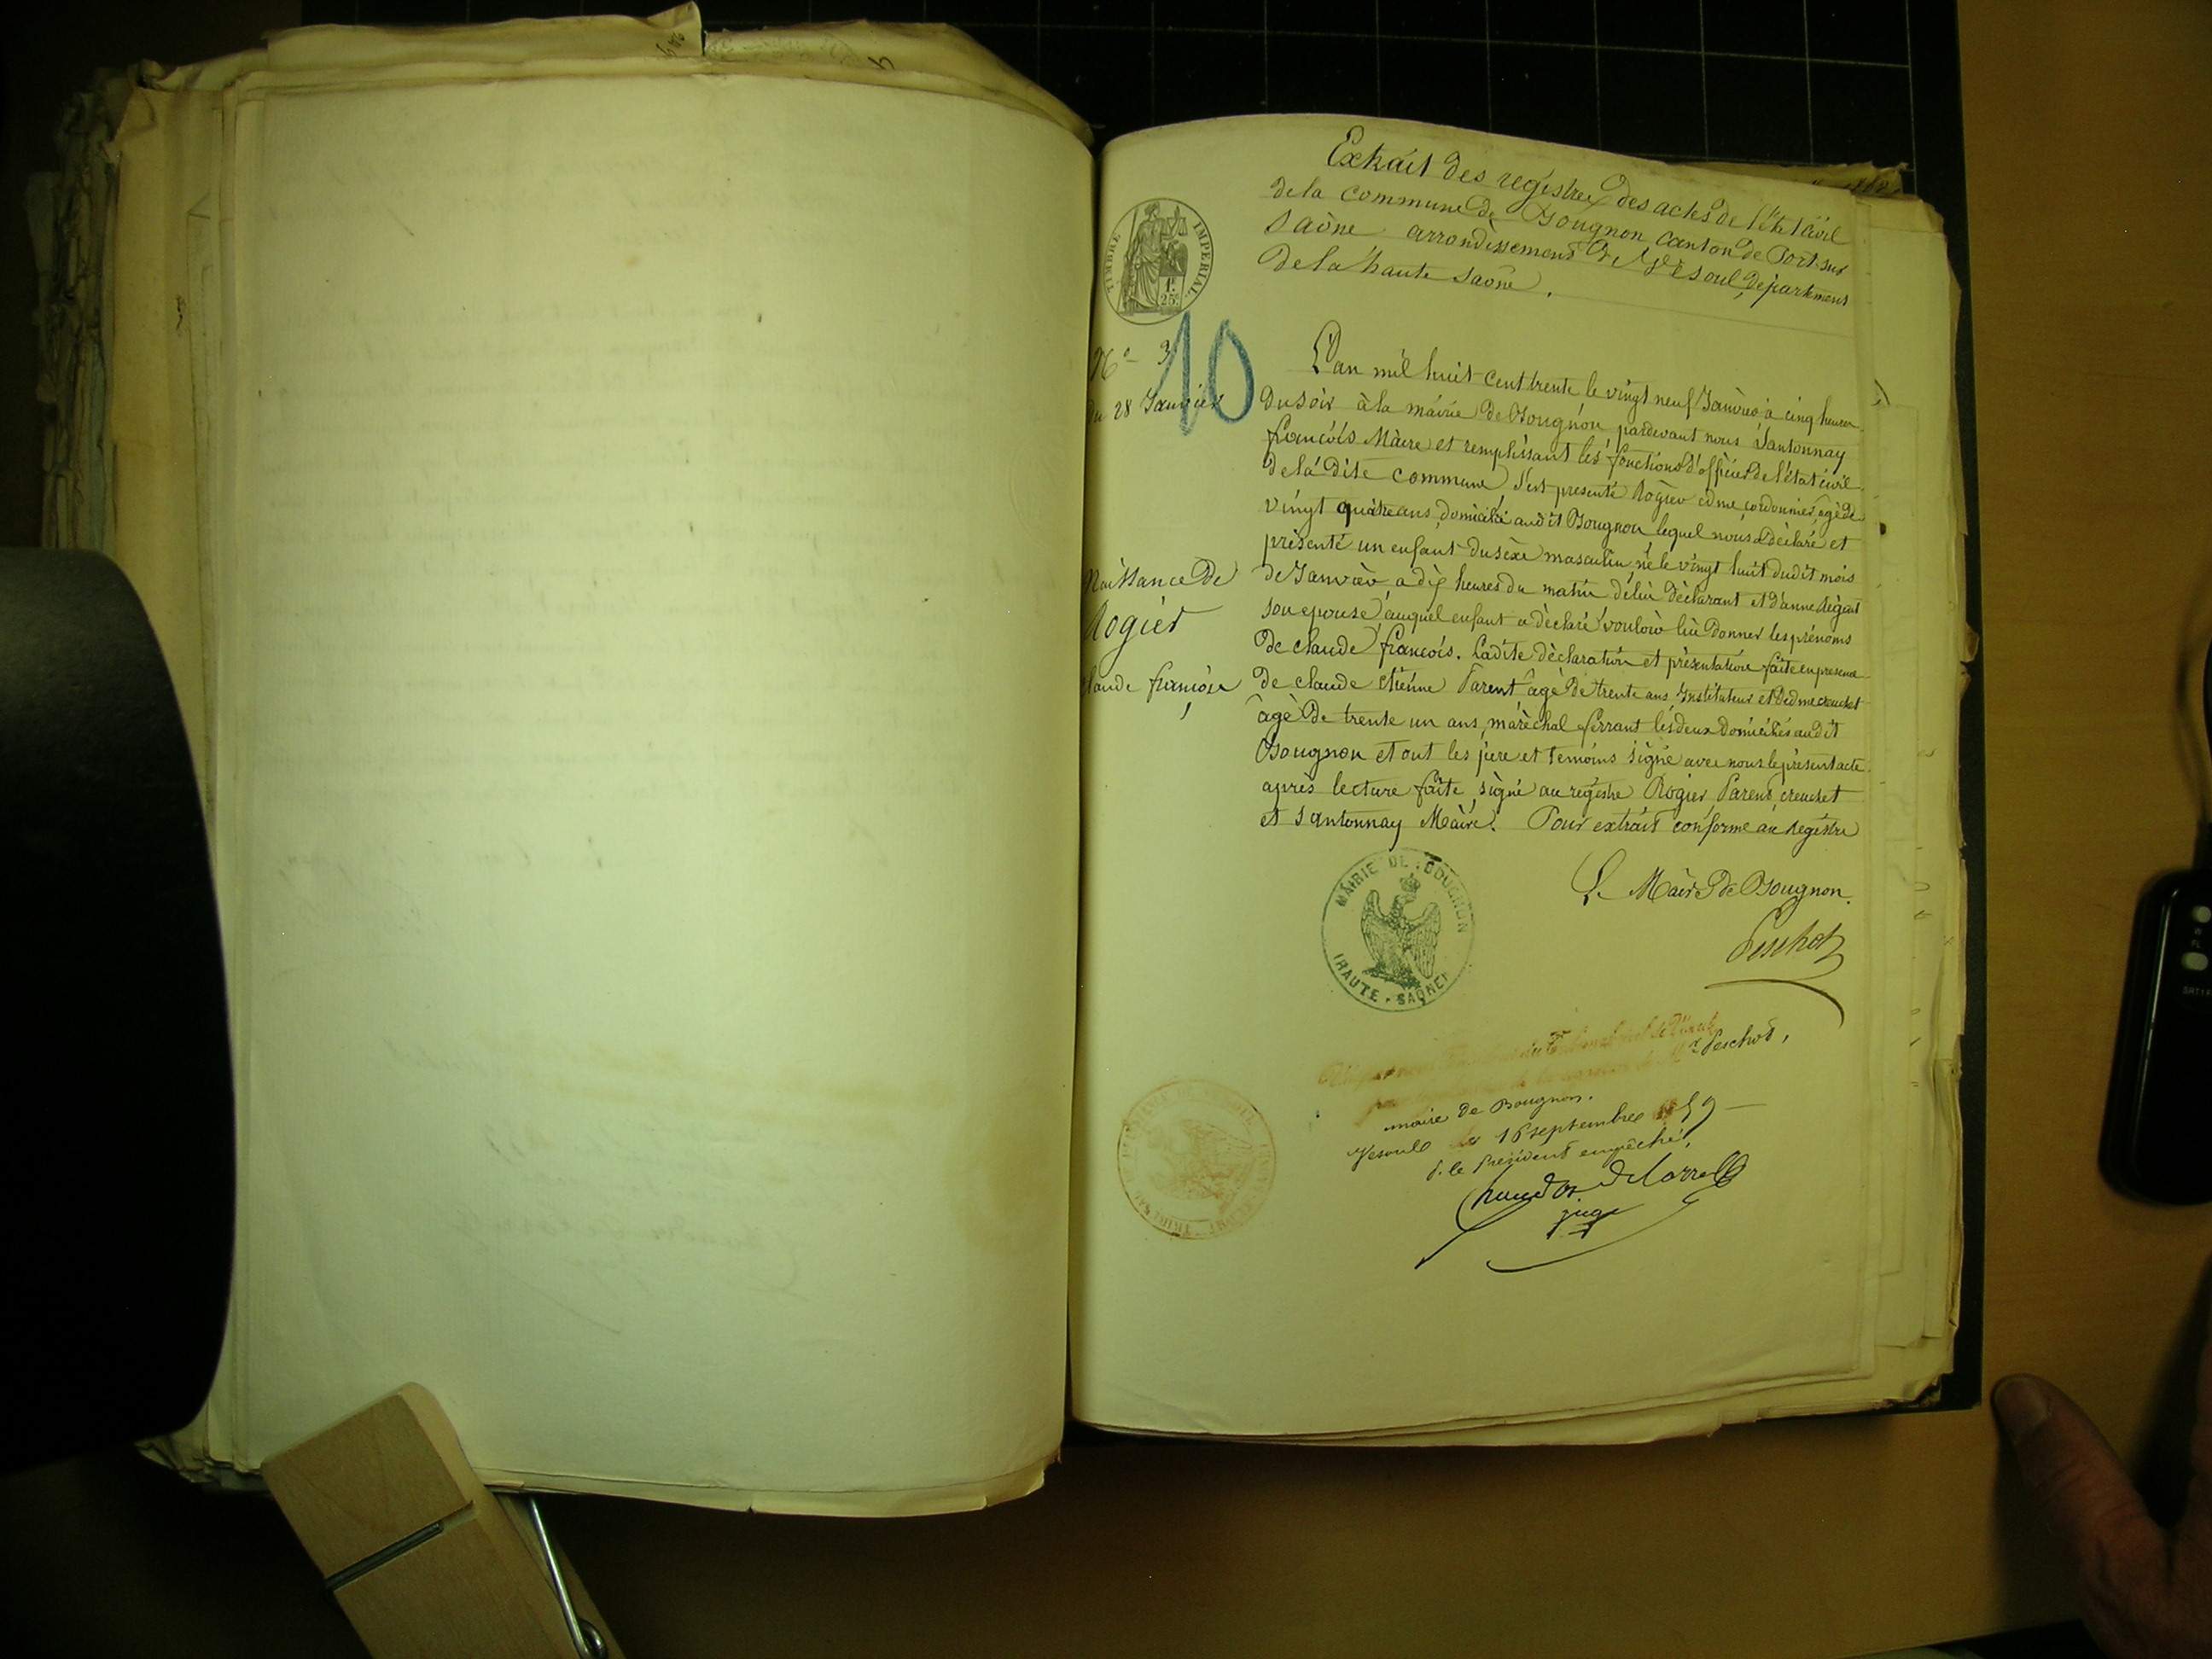 Extrait des registres des actes de l'état civil
de la commune de Bougnon canton de Port-sur
Saône arrondissement de Vesoul, département
de la haute Saône.
TIMBRE IMPERIAL
1f.
25c
10
No 3
du 28 Janvier
L'an mil huit cent trente le vingt neuf Janvier à cinq heures
du soir à la mairie de Bougnon pardevant nous Santonnay
françois Maire et remplissant les fonctions d'officier de l'état civil
de la dite commune s'est présenté Rogier edme, cordonnier, agé de
vingt quatre ans, domicilié audit Bougnon lequel nous a déclaré et
présenté un enfant du sèxe masculin, né le vingt huit dudit mois
Naissance de
Rogier
claude françois
de Janvier, a dix heures du matin de lui déclarant et d'anne
son epouse, auquel enfant a déclaré vouloir lui donner les prénoms
de claude françois. Ladite déclaration et présentation faite en presence
de claude etienne Parent agé de trente ans, Instituteur et creuchet
âgé de trente un ans, maréchal ferrant les deux domiciliés audit
Bougnon et ont les père et temoins signé avec nous le présent acte
après lecture faite, signé au registre Rogier, Parent, creuchet
et Santonnay Maire. Pour extrait conforme au Registre
Le Maire de Bougnon.
Peschot
MAIRIE DE BOUGNON
(HAUTE-SAÔNE)
du Tribunal civil de Vesoul
de la signature de Mr Peschot,
maire de Bougnon.
Vesoul le 16 septembre 1859
p. le Président empêché,
juge